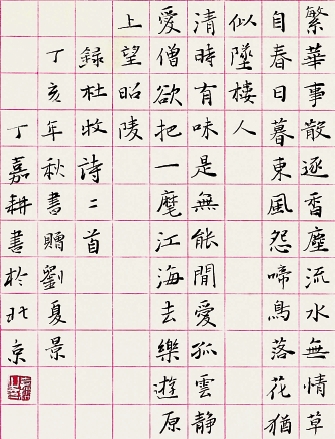 繁華事散逐香塵流水無情草
自春日暮東風怨啼鳥落花猶
似墜樓人
清時有味是無能閒愛孤雲静
愛僧欲把一麾江海去樂遊原
上望昭陵
録杜牧詩二首
丁亥年秋書贈劉夏景
丁嘉耕書於北京